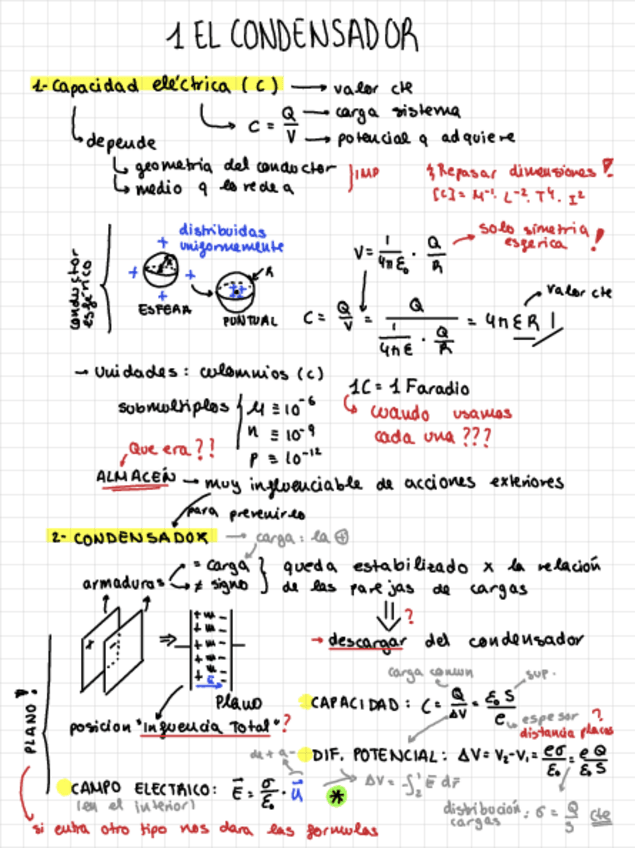 1 EL CONDENSADOR
1- Capacidad eléctrica (C) → valor cte
→ C = Q/V → carga sistema
→ potencial q adquiere
depende
geometría del conductor
medio q lo rodea
} IMP
¿Repasar dimensiones!
[C] = M⁻¹ · L⁻² · T⁴ · I²
conductor esférico
distribuidas
uniformemente
+ + + +
R
ESFERA
R
PUNTUAL
V = 1/4πε₀ · Q/R → solo simetría esférica !
C = Q/V = Q / (1/4πε · Q/R) = 4πεR | → valor cte
→ Unidades: culomnios (c)
1C = 1 Faradio
submultiplos
μ ≡ 10⁻⁶
n ≡ 10⁻⁹
p ≡ 10⁻¹²
cuando usamos
cada una ???
Que era ??
ALMACEÑ → muy influenciable de acciones exteriores
para prevenirlo
2- CONDENSADOR → carga: la ⊕
armaduras
= carga
≠ signo
} queda estabilizado x la relación
de las parejas de cargas
⇓ ?
→ descargar del condensador
+ - ⇒ + + + + + - - - - -
E
plano
posicion "Influencia Total" ?
PLANO !
carga común
sup.
CAPACIDAD: C = Q/ΔV = ε₀ S/e
espesor
distancia placas ?
DIF. POTENCIAL: ΔV = V₂ - V₁ = eσ/ε₀ = e Q/ε₀ S
de + a -
CAMPO ELECTRICO: E⃗ = σ/ε₀ · u⃗
(en el interior)
* ΔV = -∫₁² E⃗ dr⃗
distribución cargas : σ = Q/S cte
si entra otro tipo nos dara las formulas